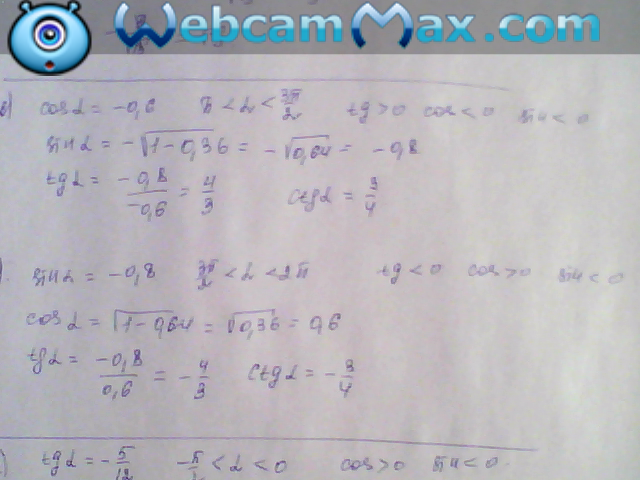 WebcamMax.com
cos α = -0,6 π < α < 3π/2 tg > 0 cos < 0 sin < 0
sin α = -√(1-0,36) = -√0,64 = -0,8
tg α = -0,8/-0,6 = 4/3 ctg α = 3/4
sin α = -0,8 3π/2 < α < 2π tg < 0 cos > 0 sin < 0
cos α = √(1-0,64) = √0,36 = 0,6
tg α = -0,8/0,6 = -4/3 ctg α = -3/4
tg α = -5/12 < α < 0 cos > 0 sin < 0